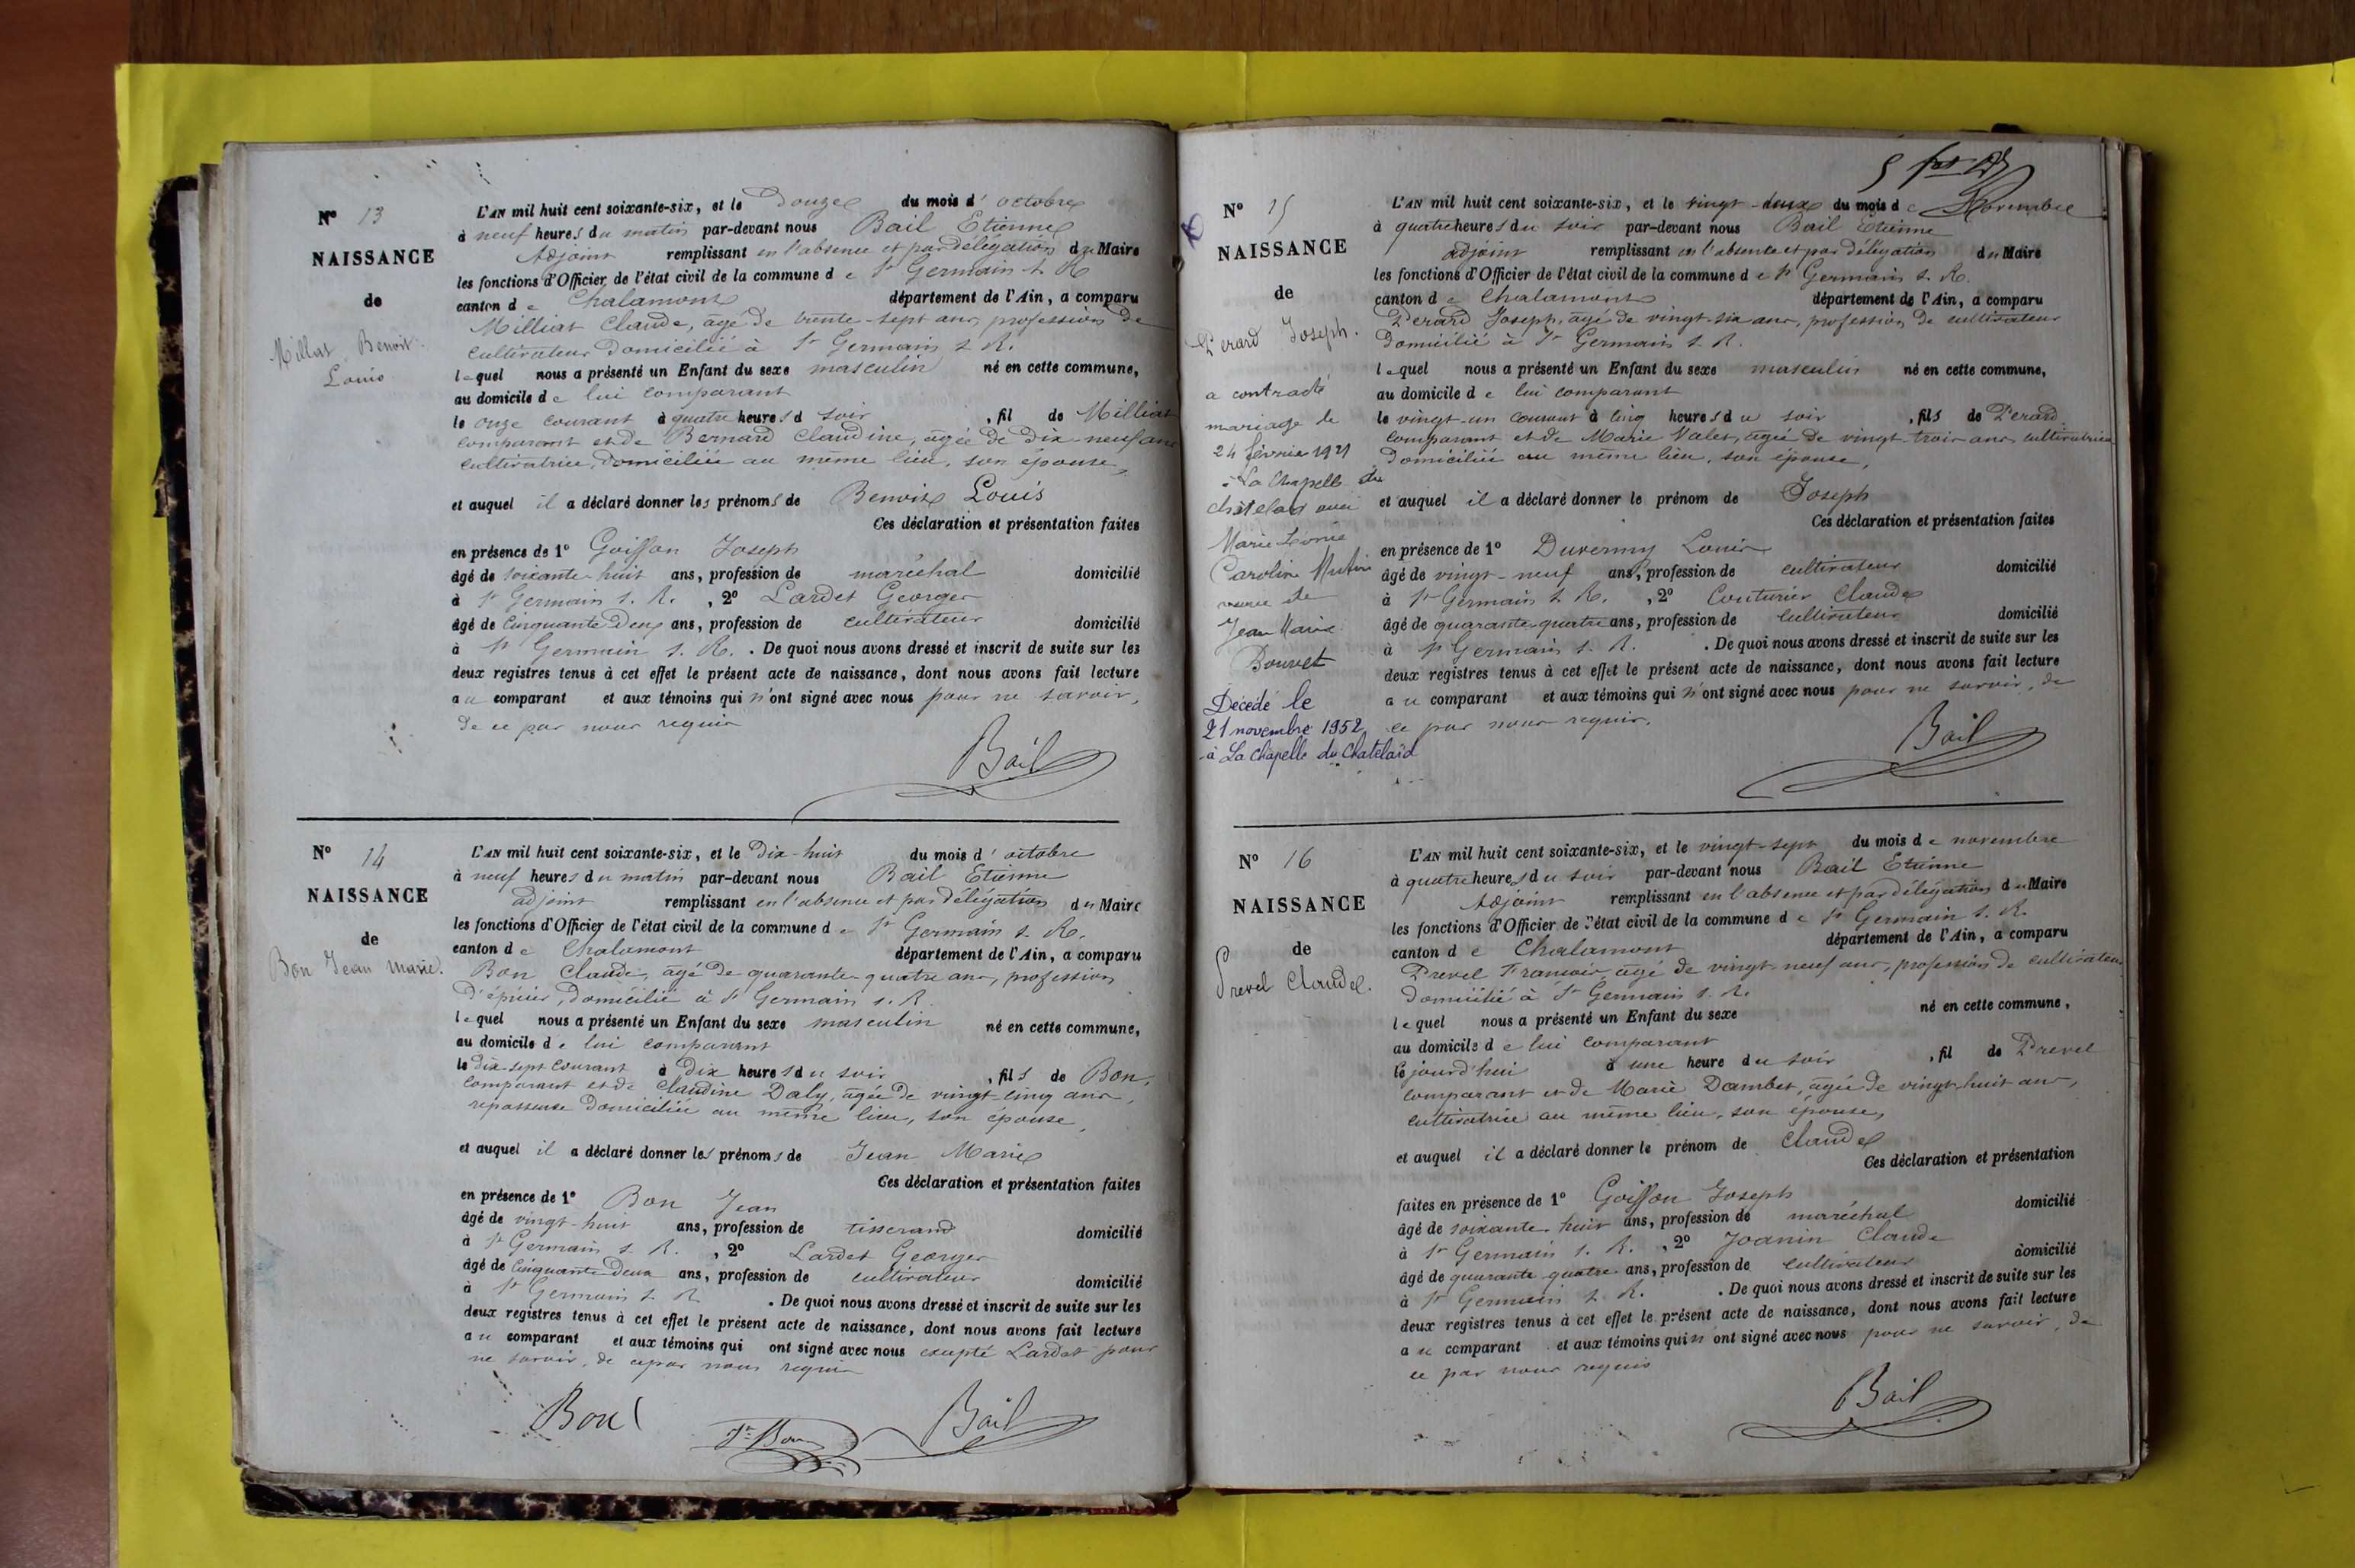 N° 13
NAISSANCE
de
Millat Benoit
Louis
L'AN mil huit cent soixante-six, et le Douze du mois d' octobre
à neuf heures du matin par-devant nous Bail Etienne
Adjoint remplissant en l'absence et par délégation du Maire
les fonctions d'Officier de l'état civil de la commune de St Germain s. R.
canton de Chalamont département de l'Ain, a comparu
Milliat Claude, âgé de trente-sept ans, profession de
cultivateur domicilié à St Germain s. R.
lequel nous a présenté un Enfant du sexe masculin né en cette commune,
au domicile de lui comparant
le onze courant à quatre heures d soir , fil de Milliat
comparant et de Bernard Claudine, âgée de dix-neuf ans
cultivatrice, domiciliée au même lieu, son épouse,
et auquel il a déclaré donner les prénoms de Benoit Louis
Ces déclaration et présentation faites
en présence de 1° Goiffon Joseph
âgé de soixante-huit ans, profession de maréchal domicilié
à St Germain s. R. , 2° Lardet Georges
âgé de Cinquante Deux ans, profession de cultivateur domicilié
à St Germain s. R. . De quoi nous avons dressé et inscrit de suite sur les
deux registres tenus à cet effet le présent acte de naissance, dont nous avons fait lecture
au comparant et aux témoins qui n'ont signé avec nous pour ne savoir,
de ce par nous requis
Bail
N° 14
NAISSANCE
de
Bon Jean Marie.
L'AN mil huit cent soixante-six, et le Dix-huit du mois d' octobre
à neuf heures du matin par-devant nous Bail Etienne
adjoint remplissant en l'absence et par délégation du Maire
les fonctions d'Officier de l'état civil de la commune de St Germain s. R.
canton de Chalamont département de l'Ain, a comparu
Bon Claude, âgé de quarante-quatre ans, profession
d'épicier, domicilié à St Germain s. R.
lequel nous a présenté un Enfant du sexe masculin né en cette commune,
au domicile de lui comparant
le dix-sept courant à dix heures du soir , fils de Bon,
comparant et de Claudine Daly, âgée de vingt-cinq ans,
repasseuse domiciliée au même lieu, son épouse,
et auquel il a déclaré donner les prénoms de Jean Marie
Ces déclaration et présentation faites
en présence de 1° Bon Jean
âgé de vingt-huit ans, profession de tisserand domicilié
à St Germain s. R. , 2° Lardet Georges
âgé de Cinquante Deux ans, profession de cultivateur domicilié
à St Germain s. R. . De quoi nous avons dressé et inscrit de suite sur les
deux registres tenus à cet effet le présent acte de naissance, dont nous avons fait lecture
au comparant et aux témoins qui ont signé avec nous excepté Lardet pour
ne savoir, de ce par nous requis
Bon
Jn Bon
Bail
N° 15
NAISSANCE
de
Perard Joseph.
a contracté
mariage le
24 février 1921
à La Chapelle du
châtelard avec
Marie
Caroline
veuve de
Jean Marie
Bouvet
Décédé le
21 novembre 1952
à La Chapelle du Chatelard
L'AN mil huit cent soixante-six, et le vingt-deux du mois de Novembre
à quatre heures du soir par-devant nous Bail Etienne
adjoint remplissant en l'absence et par délégation du Maire
les fonctions d'Officier de l'état civil de la commune de St Germain s. R.
canton de Chalamont département de l'Ain, a comparu
Perard Joseph, âgé de vingt-six ans, profession de cultivateur
domicilié à St Germain s. R.
lequel nous a présenté un Enfant du sexe masculin né en cette commune,
au domicile de lui comparant
le vingt-un courant à cinq heures du soir , fils de Perard
comparant et de Marie Valet, âgée de vingt-trois ans, cultivatrice
domiciliée au même lieu, son épouse,
et auquel il a déclaré donner le prénom de Joseph
Ces déclaration et présentation faites
en présence de 1° Louis
âgé de vingt-neuf ans, profession de cultivateur domicilié
à St Germain s. R. , 2° Couturier Claude
âgé de quarante-quatre ans, profession de cultivateur domicilié
à St Germain s. R. . De quoi nous avons dressé et inscrit de suite sur les
deux registres tenus à cet effet le présent acte de naissance, dont nous avons fait lecture
au comparant et aux témoins qui n'ont signé avec nous pour ne savoir, de
ce par nous requis.
Bail
N° 16
NAISSANCE
de
Prevel Claude.
L'AN mil huit cent soixante-six, et le vingt-sept du mois de novembre
à quatre heures du soir par-devant nous Bail Etienne
Adjoint remplissant en l'absence et par délégation du Maire
les fonctions d'Officier de l'état civil de la commune de St Germain s. R.
canton de Chalamont département de l'Ain, a comparu
Prevel François, âgé de vingt-neuf ans, profession de cultivateur
domicilié à St Germain s. R.
lequel nous a présenté un Enfant du sexe né en cette commune,
au domicile de lui comparant
le jourd'hui à une heure du soir , fil de Prevel
comparant et de Marie Dambet, âgée de vingt-huit ans,
cultivatrice au même lieu, son épouse,
et auquel il a déclaré donner le prénom de Claude
Ces déclaration et présentation
faites en présence de 1° Goiffon Joseph domicilié
âgé de soixante-huit ans, profession de maréchal
à St Germain s. R. , 2° Joanin Claude
âgé de quarante-quatre ans, profession de cultivateur domicilié
à St Germain s. R. . De quoi nous avons dressé et inscrit de suite sur les
deux registres tenus à cet effet le présent acte de naissance, dont nous avons fait lecture
au comparant et aux témoins qui n'ont signé avec nous pour ne savoir, de
ce par nous requis
Bail